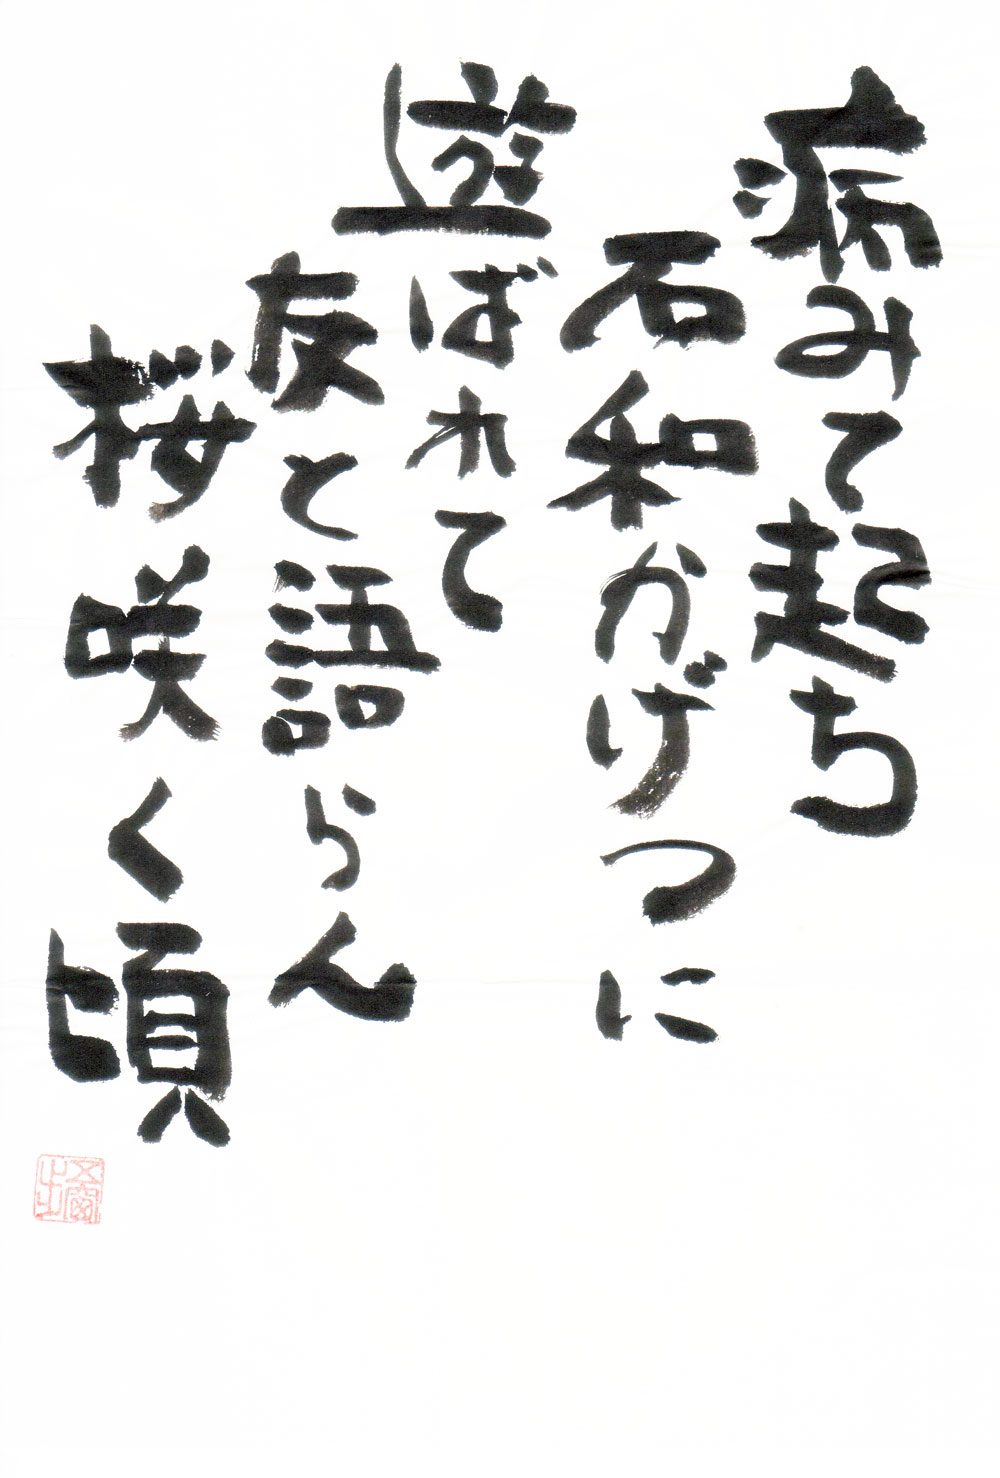 病みて起ち
石和かげつに
遊ばれて
友と語らん
桜咲く頃